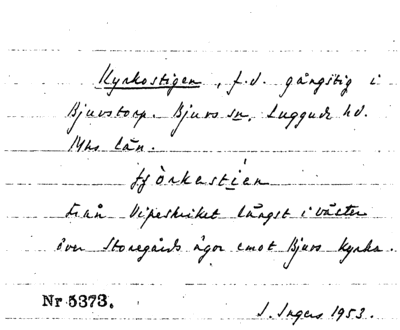 Kyrkostigen, f.d. gångstig i
Bjuvstorp. Bjuvs sn, Luggude hd.
Mhs län.
Från Vipeskriket längst i väster
över Storegårds ägor emot Bjuvs kyrka.
Nr 5373.
I. Ingers 1953.